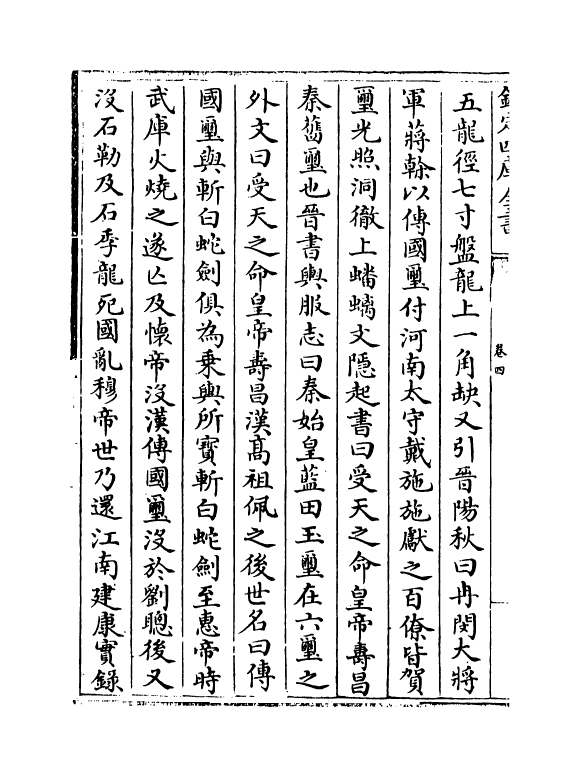 欽定四庫全書
卷四
五龍徑七寸盤龍上一角缺又引晉陽秋曰冉閔大將
軍蔣榦以傳國璽付河南太守戴施施獻之百僚皆賀
璽光照洞徹上蟠螭文隱起書曰受天之命皇帝壽昌
秦舊璽也晉書輿服志曰秦始皇藍田玉璽在六璽之
外文曰受天之命皇帝壽昌漢髙祖佩之後世名曰傳
國璽與斬白蛇劍俱為乗輿所寳斬白蛇劍至惠帝時
武庫火燒之遂亾及懷帝沒漢傳國璽沒於劉聰後又
沒石勒及石季龍死國亂穆帝世乃還江南建康實錄